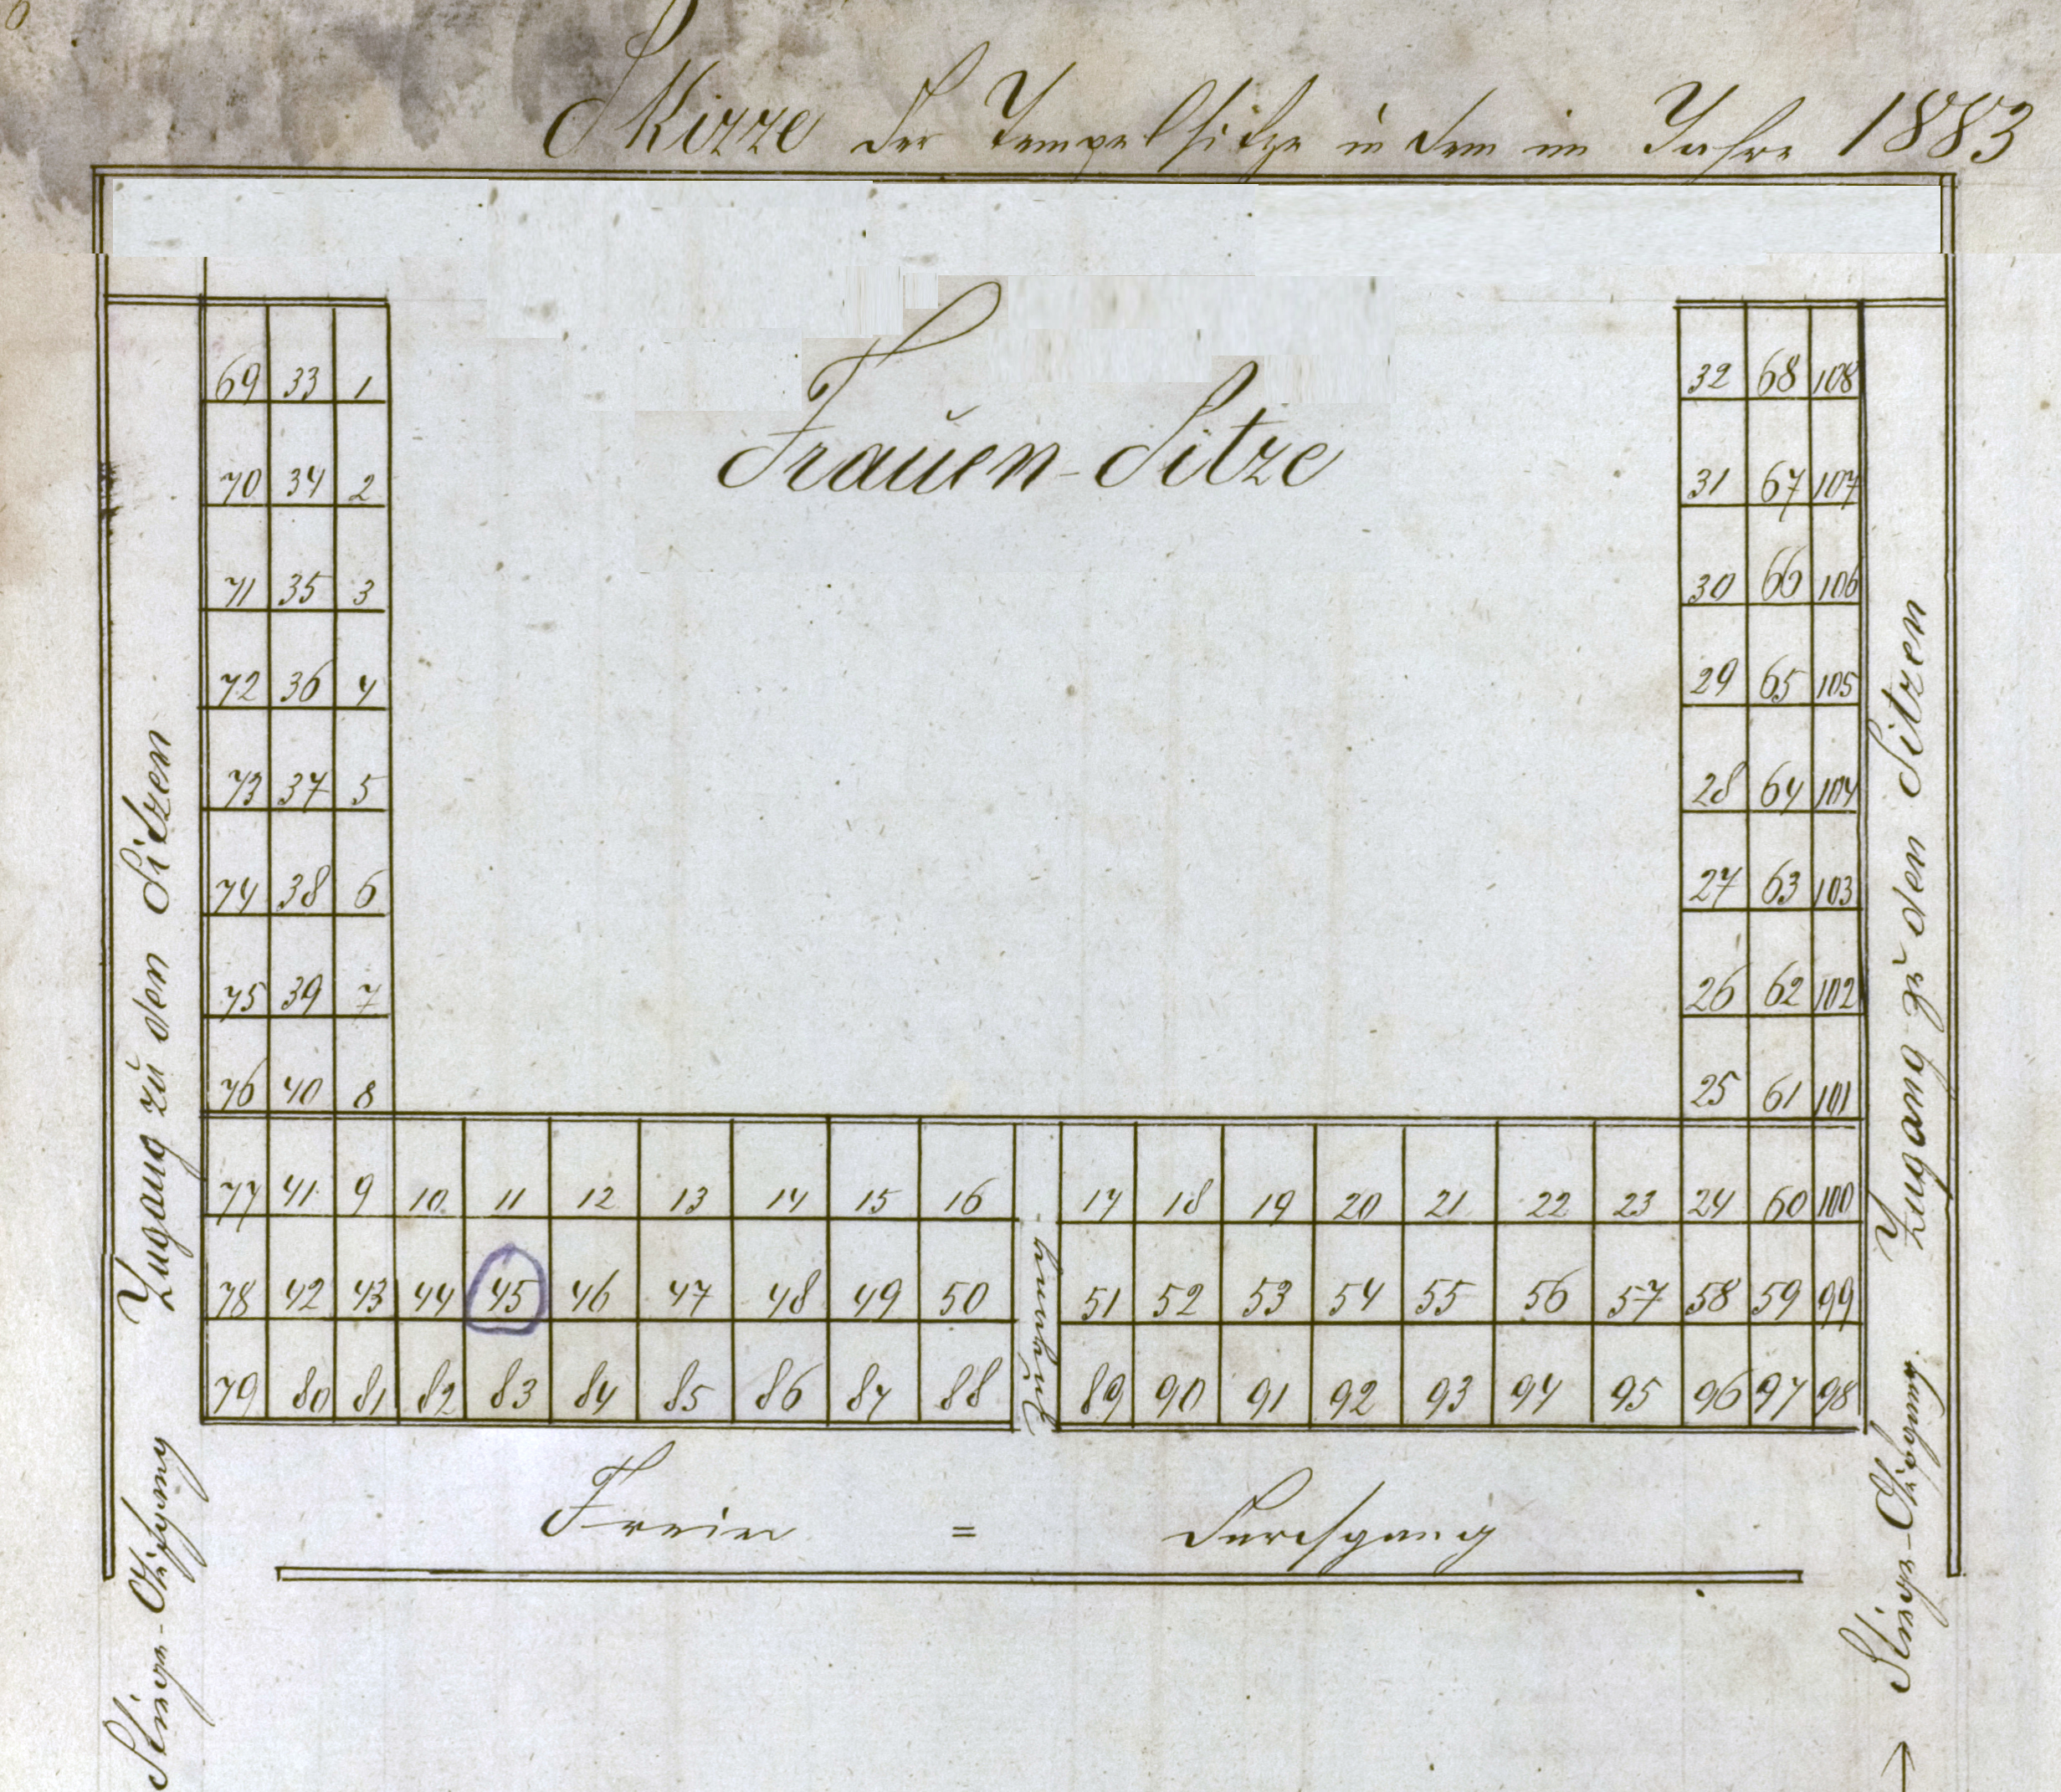 Skizze der Tempelsitze in dem im Jahre 1883
Frauen-Sitze
69 33 1
32 68 108
70 34 2
31 67 107
71 35 3
30 66 106
72 36 4
29 65 105
73 37 5
28 64 104
74 38 6
27 63 103
75 39 7
26 62 102
76 40 8
25 61 101
77 41 9 10 11 12 13 14 15 16
17 18 19 20 21 22 23 24 60 100
78 42 43 44 45 46 47 48 49 50
51 52 53 54 55 56 57 58 59 99
79 80 81 82 83 84 85 86 87 88
89 90 91 92 93 94 95 96 97 98
Zugang zu den Sitzen
Zugang zu den Sitzen
Freier = Durchgang